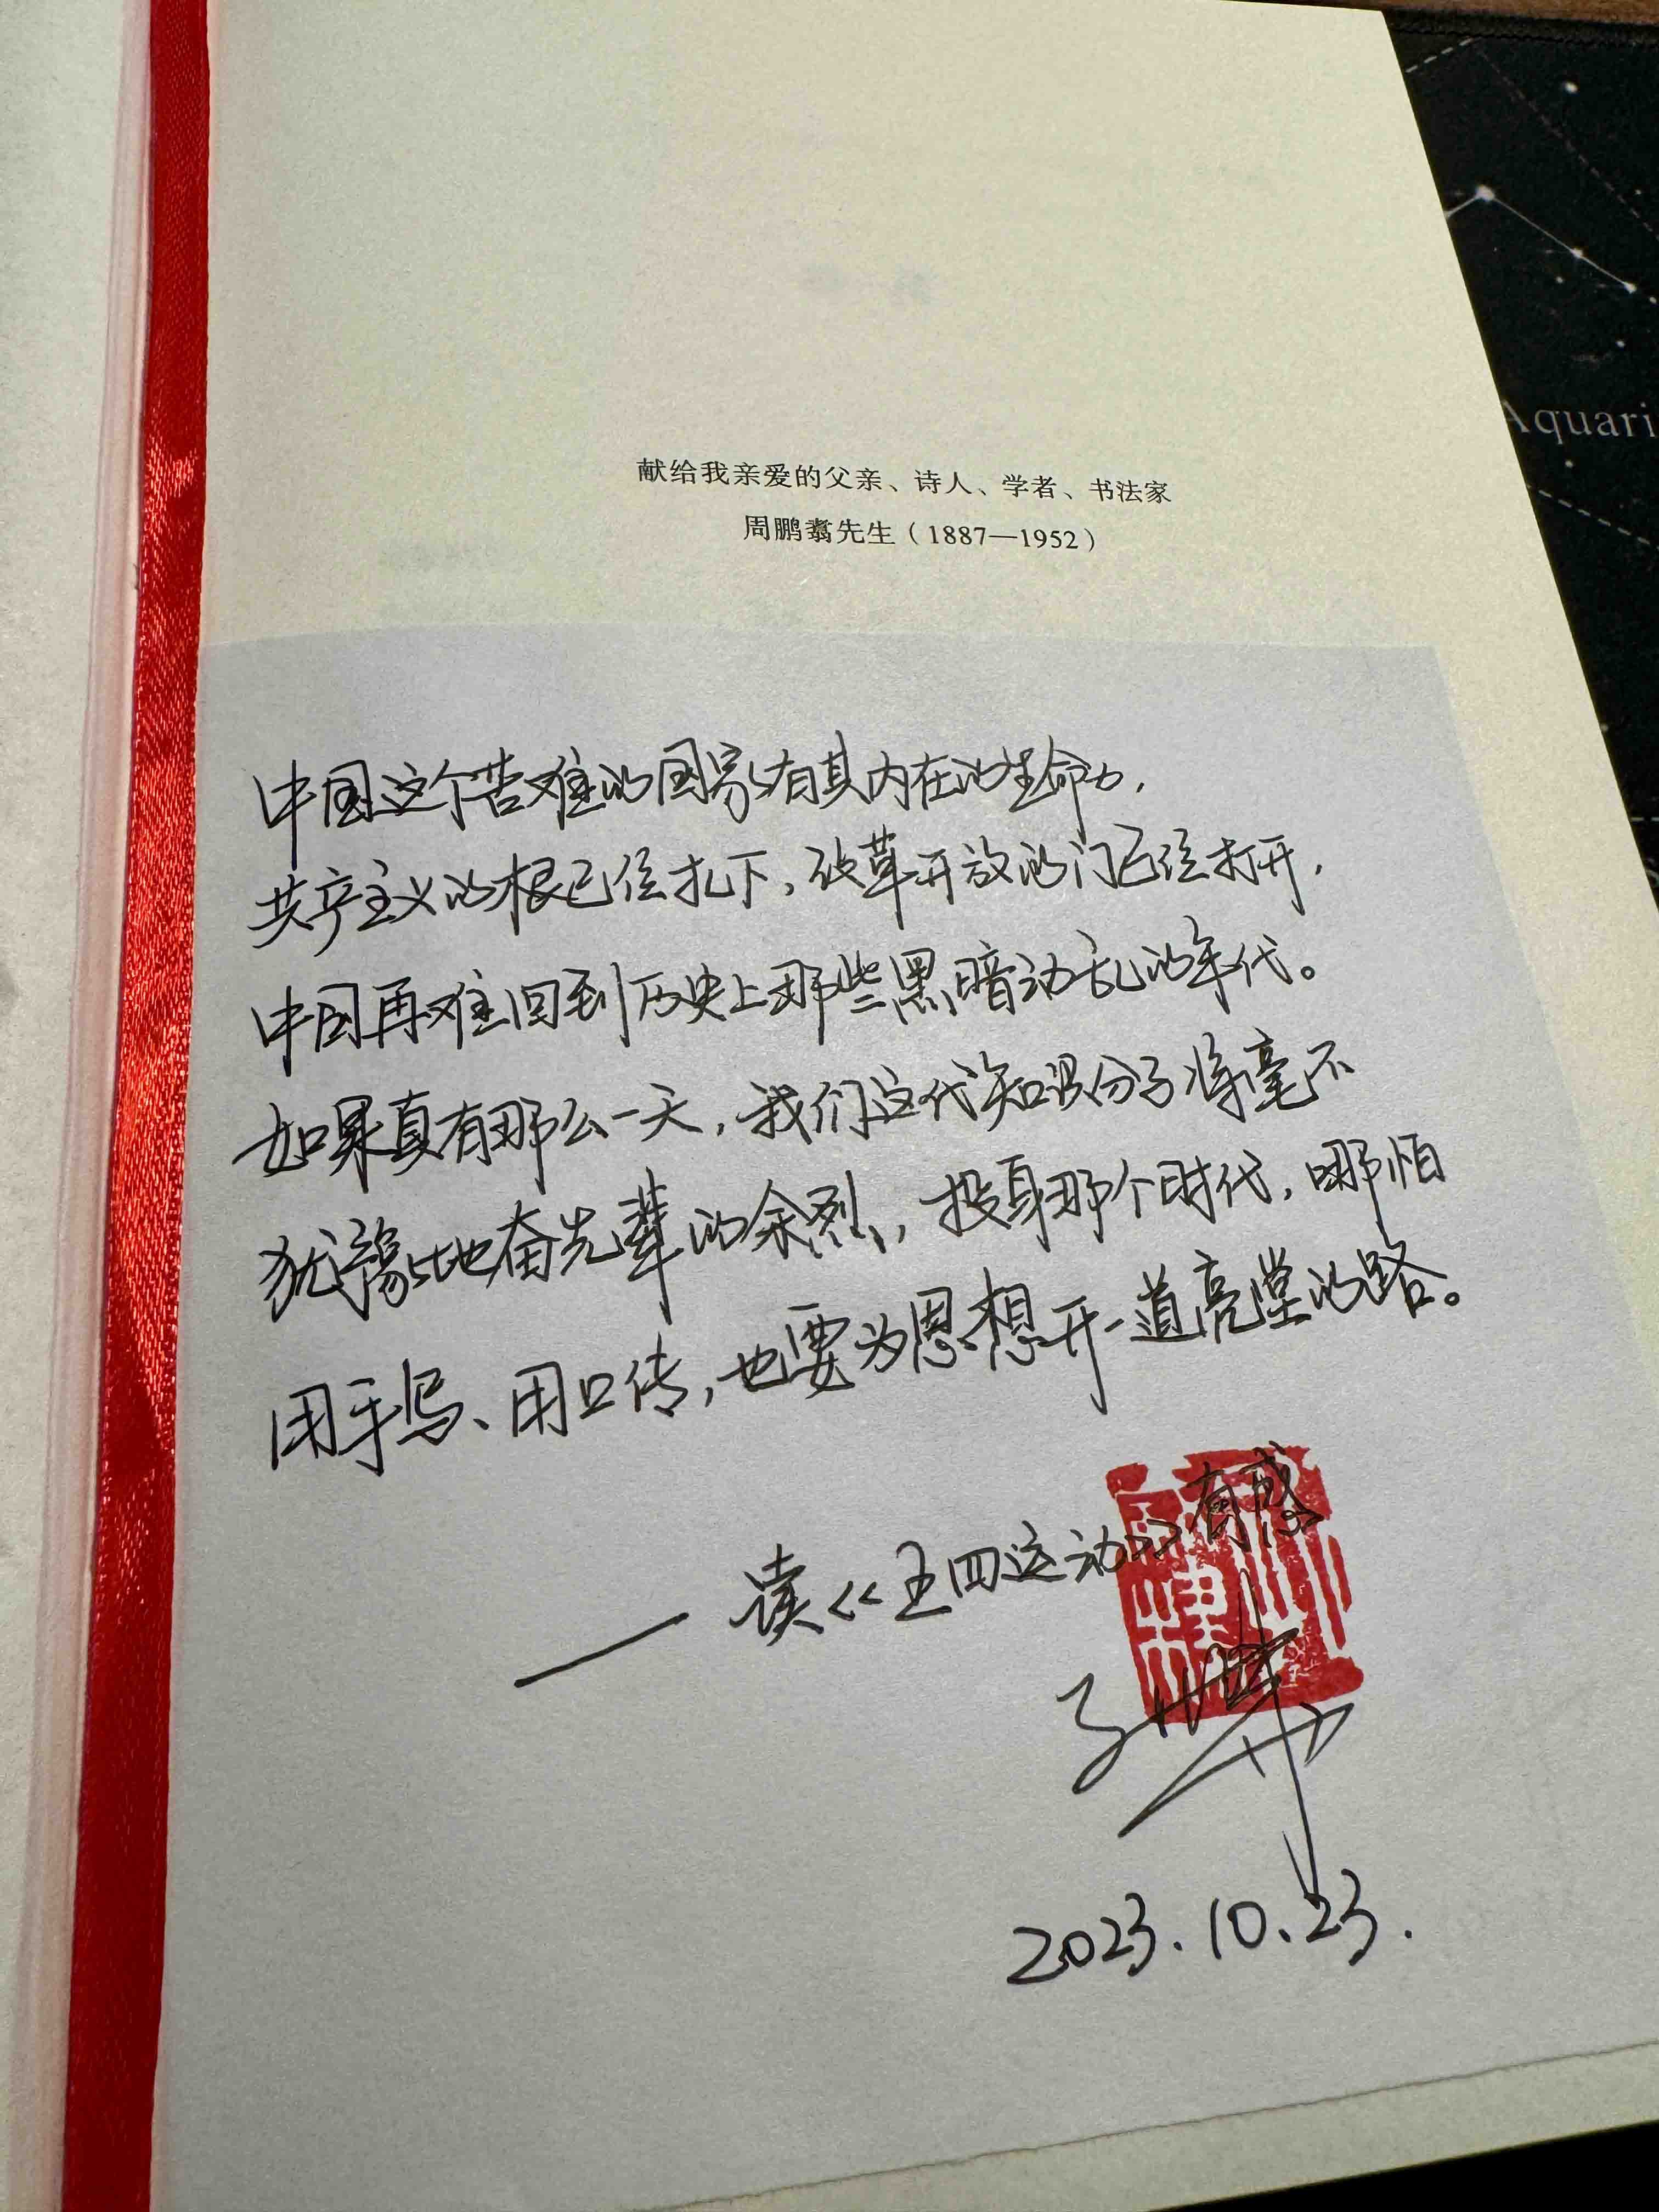 献给我亲爱的父亲、诗人、学者、书法家
周鹏翥先生（1887—1952）
Aquari
中国这个苦难的国家有其内在的生命力，
共产主义的根已经扎下，改革开放的门已经打开，
中国再难回到历史上那些黑暗动乱的年代。
如果真有那么一天，我们这代知识分子将毫不
犹豫地奋先辈的余烈，投身那个时代，哪怕
用手写、用口传，也要为思想开一道亮堂的路。
——读《五四运动》有感
2023.10.23.